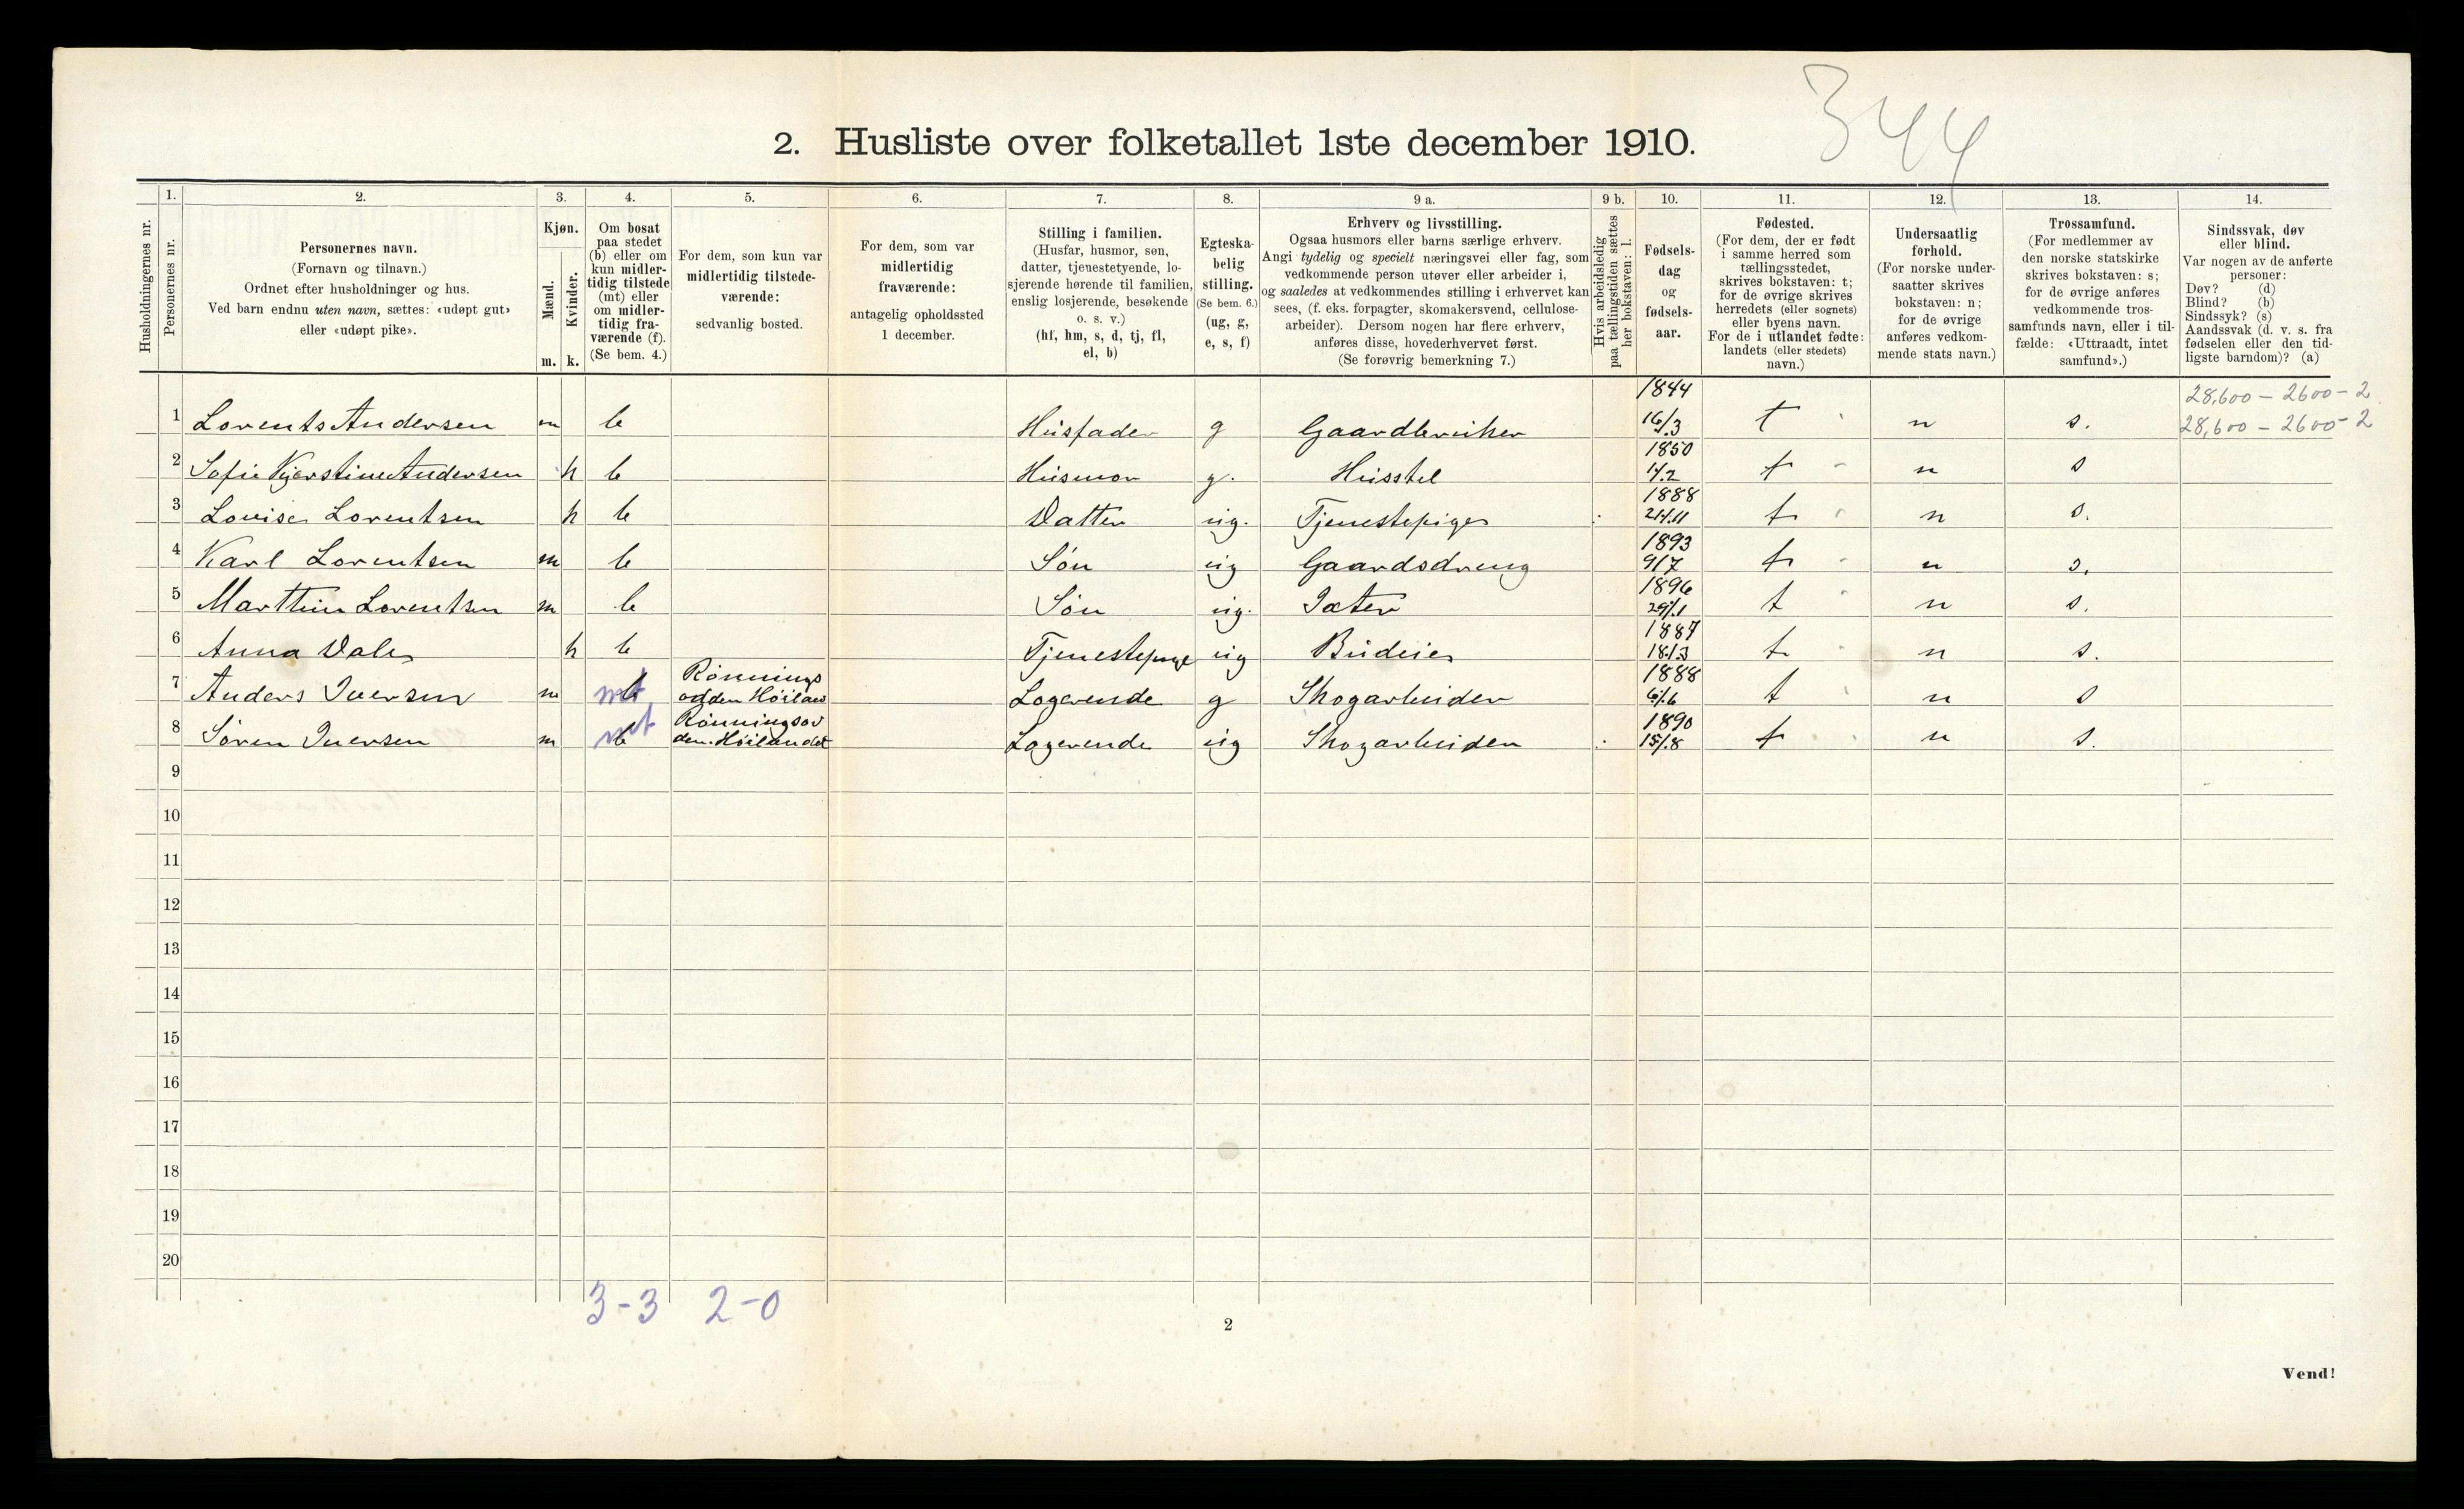 344
2. Husliste over folketallet 1ste december 1910.
Husholdningernes nr.
1. Personernes nr.
2. Personernes navn.
(Fornavn og tilnavn.)
Ordnet efter husholdninger og hus.
Ved barn endnu uten navn, sættes: «udøpt gut»
eller «udøpt pike».
3. Kjøn.
Mænd. m.
Kvinder. k.
4. Om bosat
paa stedet
(b) eller om
kun midler-
tidig tilstede
(mt) eller
om midler-
tidig fra-
værende (f).
(Se bem. 4.)
5. For dem, som kun var
midlertidig tilstede-
værende:
sedvanlig bosted.
6. For dem, som var
midlertidig
fraværende:
antagelig opholdssted
1 december.
7. Stilling i familien.
(Husfar, husmor, søn,
datter, tjenestetyende, lo-
sjerende hørende til familien,
enslig losjerende, besøkende
o. s. v.)
(hf, hm, s, d, tj, fl,
el, b)
8. Egteska-
belig
stilling.
(Se bem. 6.)
(ug, g,
e, s, f)
9 a. Erhverv og livsstilling.
Ogsaa husmors eller barns særlige erhverv.
Angi tydelig og specielt næringsvei eller fag, som
vedkommende person utøver eller arbeider i,
og saaledes at vedkommendes stilling i erhvervet kan
sees, (f. eks. forpagter, skomakersvend, cellulose-
arbeider). Dersom nogen har flere erhverv,
anføres disse, hovederhvervet først.
(Se forøvrig bemerkning 7.)
9 b. Hvis arbeidsledig
paa tællingstiden sættes
her bokstaven: l.
10. Fødsels-
dag
og
fødsels-
aar.
11. Fødested.
(For dem, der er født
i samme herred som
tællingsstedet,
skrives bokstaven: t;
for de øvrige skrives
herredets (eller sognets)
eller byens navn.
For de i utlandet fødte:
landets (eller stedets)
navn.)
12. Undersaatlig
forhold.
(For norske under-
saatter skrives
bokstaven: n;
for de øvrige
anføres vedkom-
mende stats navn.)
13. Trossamfund.
(For medlemmer av
den norske statskirke
skrives bokstaven: s;
for de øvrige anføres
vedkommende tros-
samfunds navn, eller i til-
fælde: «Uttraadt, intet
samfund».)
14. Sindssvak, døv
eller blind.
Var nogen av de anførte
personer:
Døv? (d)
Blind? (b)
Sindssyk? (s)
Aandssvak (d. v. s. fra
fødselen eller den tid-
ligste barndom)? (a)
28,600 - 2600 - 2
28,600 - 2600 - 2
1 Lorents Andersen m b Husfader g Gaardbruker 1844 16/3 t n s.
2 Sofie Kjerstine Andersen k b Husmor g. Husstel 1850 1/2 t n s
3 Louise Lorentsen k b Datter ug. Tjenestepige 1888 21/11 t n s.
4 Karl Lorentsen m b Søn ug Gaardsdreng 1893 9/7 t n s.
5 Marthin Lorentsen m b Søn ug. 1896 29/1 t n s.
6 Anna Dale k b Tjenestepige ug Budeie 1887 18/3 t n s.
7 Anders Iversen m mt Rønnings
odden Høilan Logerende g Skogarbeider 1888 6/6 t n s
8 Søren Iversen m mt Rønningsod
den. Høilandet Logerende ug Skogarbeider 1890 15/8 t n s.
9
10
11
12
13
14
15
16
17
18
19
20
3-3 2-0
2
Vend!